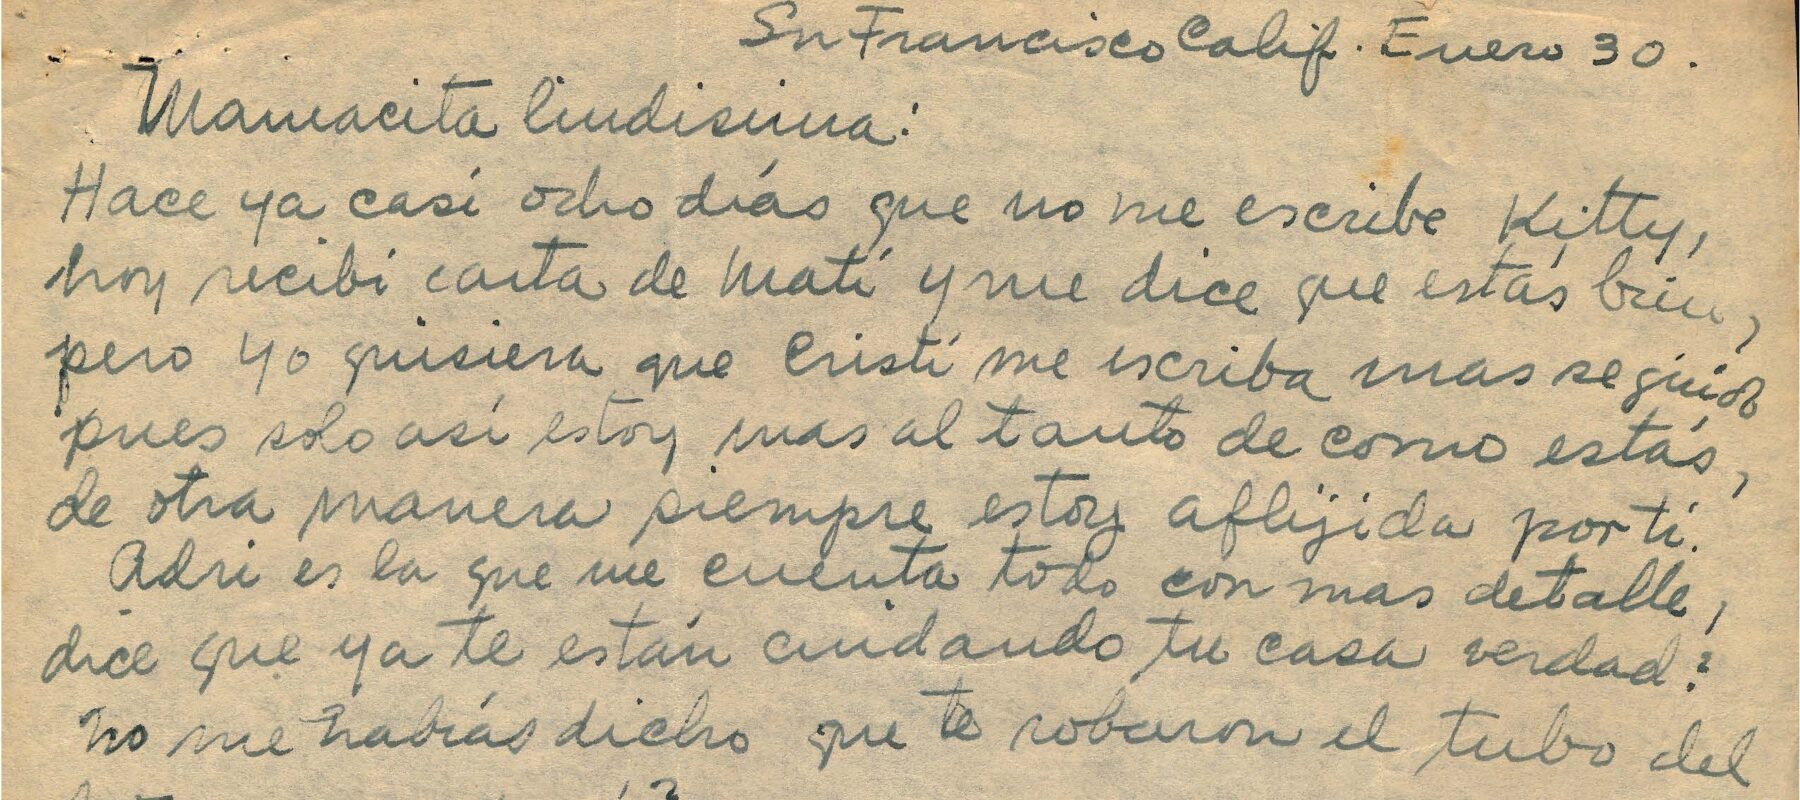 Sn Francisco Calif. Enero 30.
Mamacita lindisima:
Hace ya casi ocho días que no me escribe Kitty,
hoy recibí carta de Mati y me dice que estás bien,
pero yo quisiera que Cristi me escriba mas seguido
pues solo así estoy mas al tanto de como estás,
de otra manera siempre estoy aflijida por ti.
Adri es la que me cuenta todo con mas detalle,
dice que ya te están cuidando tu casa verdad?
no me habías dicho que te robaron el tubo del